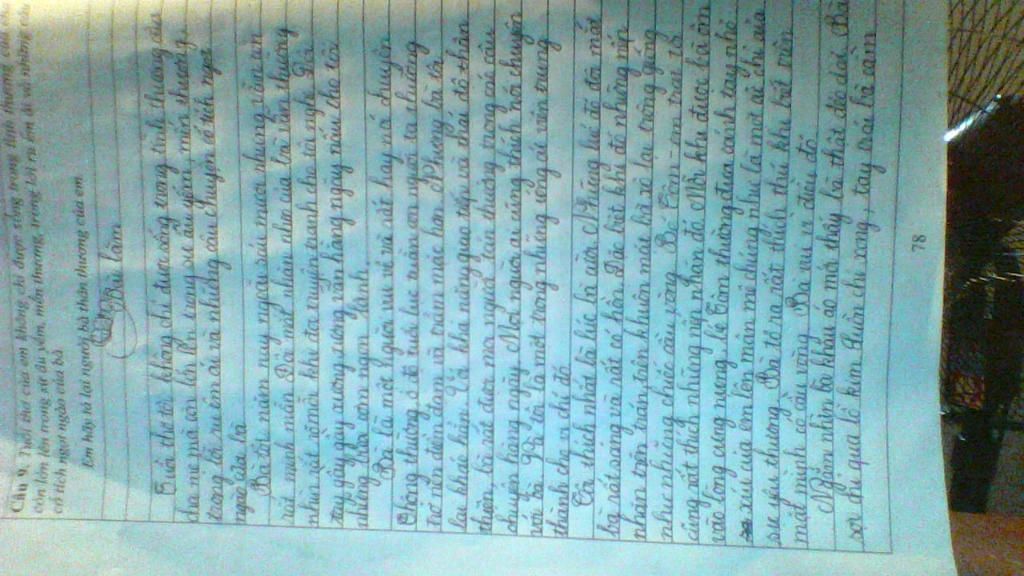 Câu 9. Tuổi thơ của em không chỉ được sống trong tình thương của cha
còn lớn lên trong sự âu yếm, mến thương, trong lời ru êm ái và những câu
cổ tích ngọt ngào của bà
Em hãy tả lại người bà thân thương của em
Bài làm
Tuổi thơ tôi không chỉ được sống trong tình thương của
cha mẹ mà còn lớn lên trong sự âu yếm, mến thương,
trong lời ru êm ái và những câu chuyện cổ tích ngọt
ngào của bà
Bà tôi năm nay ngoài sáu mươi nhưng vẫn còn
rất minh mẫn Đôi mắt nhân như của bà vẫn thường
nhìn rất rõ mỗi khi đọc truyện tranh cho tôi nghe Đôi
tay gầy gầy xương xương vẫn hằng ngày nấu cho tôi
những bữa cơm ngon lành
Bà là một người vui vẻ và rất hay nói chuyện
Thông thường ở độ tuổi lục tuần con người ta thường
trở nên điềm đạm và trầm mặc hơn Nhưng bà tôi
lại khác hẳn Với khả năng giao tiếp và thái độ thân
thiện bà rất được mọi người yêu thương trong các câu
chuyện hằng ngày Mọi người ai cũng thích nói chuyện
với bà Và tôi là một trong những vị trung
thành cho chế độ đó
Tôi thích nhất là lúc bà cười Những lúc đó đôi mắt
bà rất sáng và rất có hồn Đặc biệt khi đó những nếp
nhăn trên trán trên khuôn mặt bà xô lại trông giống
như những chiếc cầu vồng Bé Tôm em trai tôi
cũng rất thích những nếp nhăn đó Mỗi khi được bà ôm
vào lòng cưng nựng bé Tôm thường đưa cánh tay nhỏ
xíu của em lên mân mê chúng như là một ai chỉ của
sự yêu thương Bà tỏ ra rất thích thú khi biết trên
mặt mình có cầu vồng Bà vui vì điều đó
Ngắm nhìn bà khâu áo mới thấy bà thật dịu dàng Bà
sợi chỉ qua lỗ kim Luồn chỉ xong, tay trái bà cầm
78